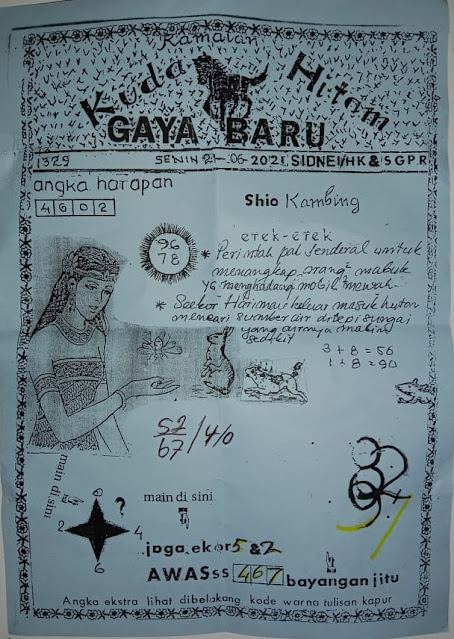 Kamalan
Kuda Hitam
GAYA BARU
1329 SENIN 21-06-2021 SIDNEI/HK & SGPR
angka harapan
4602
Shio Kambing
96
78
eTek-eTek
* Perintah pak Jenderal untuk
menangkap orang² mabuk
yg menghadang mobil mewah
* Seekor Harimau keluar masuk hutan
mencari sumber air ditepi sungai
yang airnya makin
sedikit
3 + 8 = 56
1 + 8 = 90
52/67/40
main di sini
?
8
2
4
6
main di sini
jaga ekor 5 & 2
AWASss 467 bayangan jitu
Angka ekstra lihat dibelakang kode warna tulisan kapur